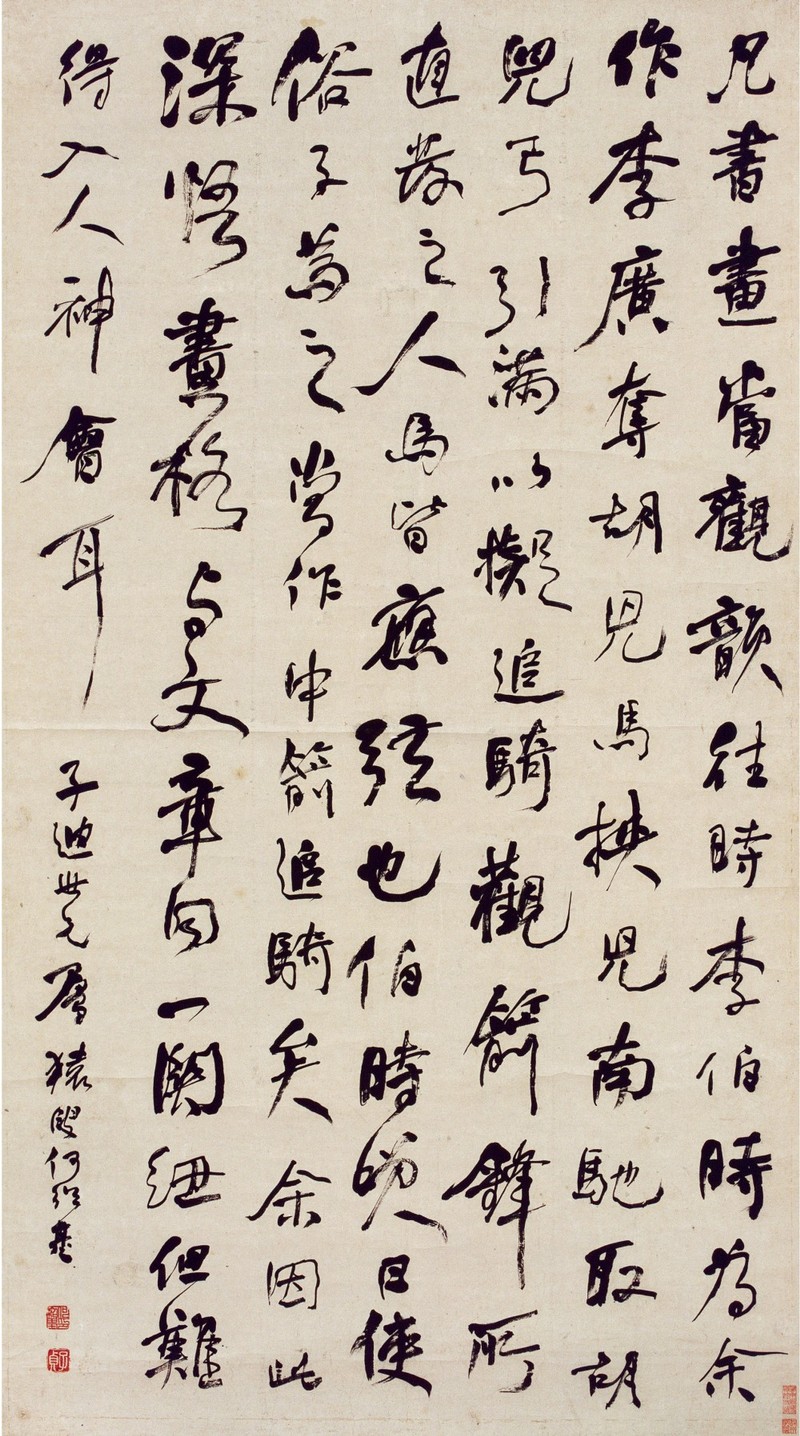 凡書畫當觀韻往時李伯時為余
作李廣奪胡兒馬挾兒南馳取胡
兒弓引滿以擬追騎觀箭鋒所
直發之人馬皆應弦也伯時笑曰使
俗子為之當作中箭追騎矣余因此
深悟畫格與文章同一關紐但難
得入人神會耳
子迪世兄屬猿叟何紹基